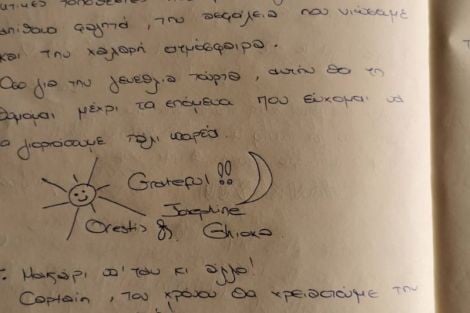 φαγητό, την ασφάλεια που νιώσαμε
και την χαλαρή ατμόσφαιρα.
Όσο για την γενέθλια τούρτα, αυτήν θα τη
θυμαμαι μέχρι τα επόμενα που εύχομαι να
γιορτάσουμε πάλι παρέα.
Grateful!!
Josephine
Orestis &
P.S. Μακάρι
απ' του κι άλλο!
Captain, του χρόνου θα χρειαστούμε την